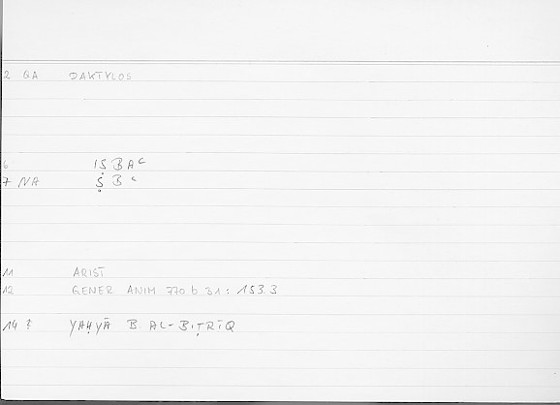 2 QA DAKTYLOS
6 IṢBAʿ
7 NA ṢBʿ
11 ARIST
12 GENER ANIM 770 b 31 : 153.3
14 ? YAḤYĀ B AL-BIṬRĪQ